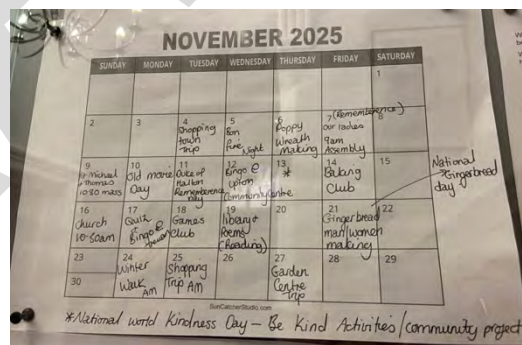 NOVEMBER 2025
SUNDAY MONDAY TUESDAY WEDNESDAY THURSDAY FRIDAY SATURDAY
1
2
3
4
Shopping
town
Trip
5
Bon
fire Night
6
Poppy
Wreath
Making
7 (Rememberence)
our ladies
9am
Assembly
8
9
St Michael
+ Thomas
10:30 mass
10
Old movie
Day
11
Duke of
Halton
Rememberence
Day
12
Bingo @
upton
Community Centre
13
*
14
Baking
Club
15
National
Gingerbread
day
16
Church
10-50am
17
Quiz
Bingo @
18
Games
Club
19
library
Poems
(Reading)
20
21
Gingerbread
man/women
making
22
23
24
Winter
Walk AM
25
Shopping
Trip AM
26
27
Garden
Centre
Trip
28
29
30
SunCatcherStudio.com
*National world Kindness Day – Be Kind Activities/community project